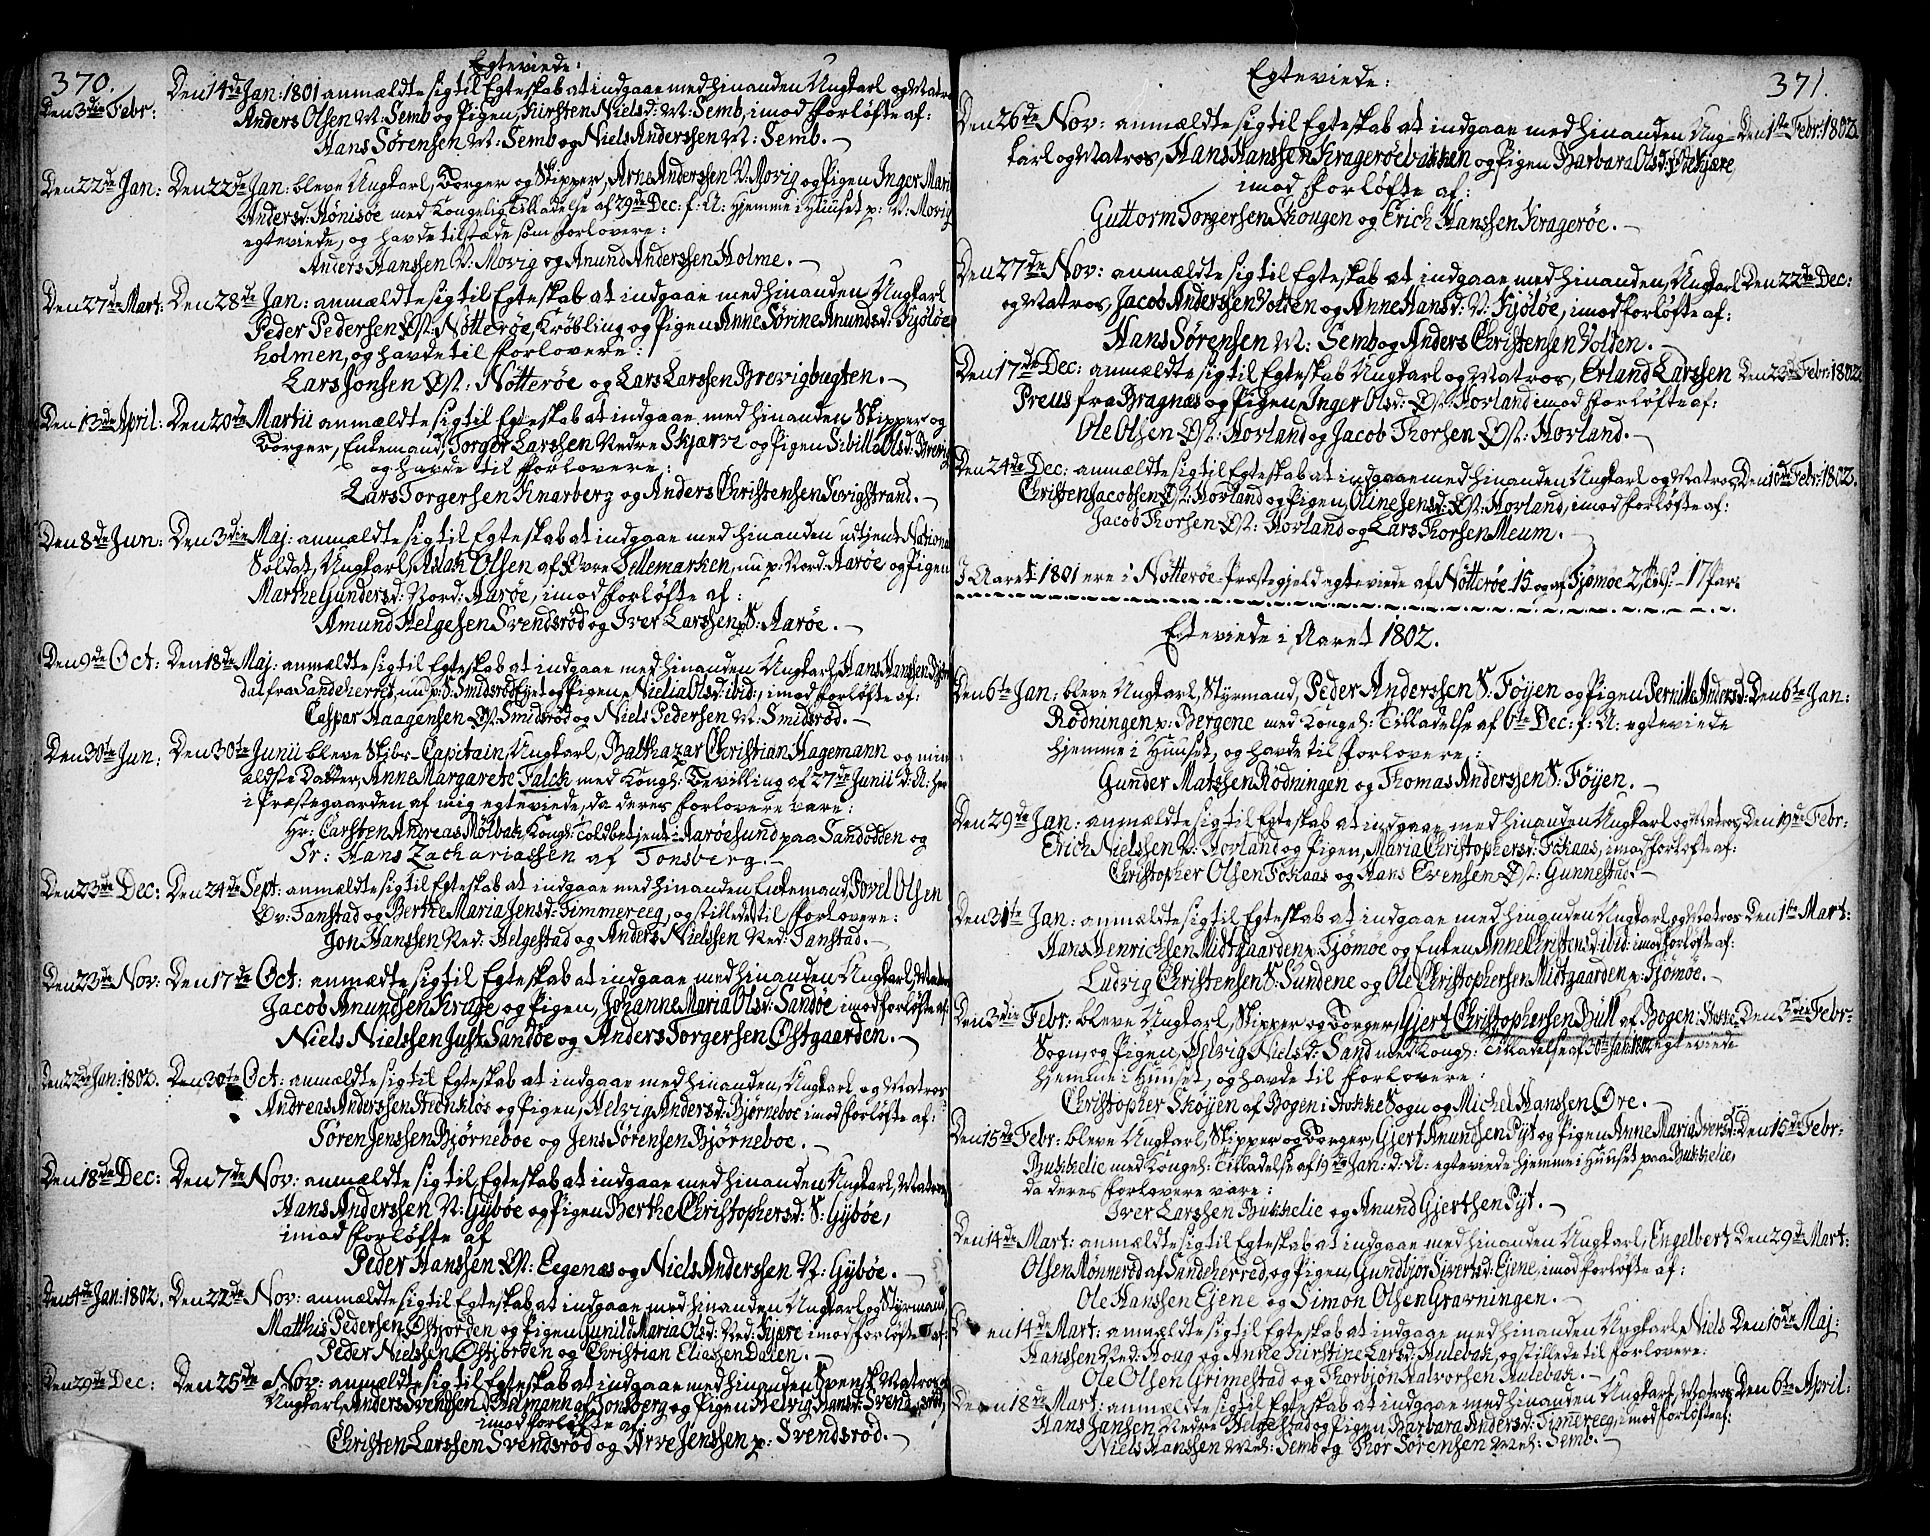 370.
Egteviede:
Den 3die Febr: Den 14de Jan: 1801 anmældte sig til Egteskab at indgaae med hinanden Ungkarl og Matros
Anders Olsen M: Semb og Pigen, Kirsten Nielsd: M: Semb, imod Forløfte af:
Hans Sørensen M: Semb og Niels Anderssen M: Semb. —
Den 22de Jan: Den 22de Jan: bleve Ungkarl, Borger og Skipper, Arne Anderssen V: Movig og Pigen Inger Mari
Andersd: Hønisøe med Kongelig Tilladelse af 29de Dec: f: A: hjemme i Huuset p: V: Movig
egteviede, og havde tilstæde som Forlovere:
Anders Hanssen V: Movig og Anund Anderssen Holme. —
Den 27de Mart: Den 28de Jan: anmældte sig til Egteskab at indgaae med hinanden, Ungkarl
Peder Pedersen Øst: Nøtterøe, Krøbling og Pigen Anne Sørine Anundsd: Fjøløe
holmen, og havde til Forlovere:
Lars Jonsen Øst: Nøtterøe og Lars Larssen Brevigbugten. —
Den 13de April: Den 20de Martii anmældte sig til Egteskab at indgaae med hinanden Skipper og
Borger, Enkemand, Torger Larssen Nedre Skjærve og Pigen Sibille Olsd: Brevig
og havde til Forlovere:
Lars Torgersen Knarberg og Anders Christensen Sevigstrand. —
Den 8de Jun: Den 3die Maj: anmældte sig til Egteskab at indgaae med hinanden udtjent National
Soldat, Ungkarl, Aslak Olsen af Øvre Tellemarken, nu p: Nord: Aarøe og Pigen
Marthe Gundersd: Nord: Aarøe, imod Forløfte af:
Amund Helgesen Svendsrød og Iver Larssen S: Aarøe. —
Den 9de Oct: Den 18de Maj: anmældte sig til Egteskab at indgaae med hinanden Ungkarl, Hans Hansen
dal fra Sandeherret, nu p: S: Smidsrød Eje og Pigen, Nielia Olsd: ibid:, imod Forløfte af:
Caspar Haagensen Øst: Smidsrød og Niels Pedersen M: Smidsrød. —
Den 30te Jun: Den 30te Junii bleve Skibs-Capitain, Ungkarl, Balthazar Christian Hagemann og min
ældste Datter, Anne Margarete Falck med Kongl: Bevilling af 27de Junii d: A: her
i Præstegaarden af mig egteviede, da deres Forlovere vare:
Hr: Carsten Andreas Mølbak Kongl: Toldbetjent i Aarøesund paa Sandodden og
Sr: Hans Zachariassen af Tonsberg. —
Den 23de Dec: Den 24de Sept: anmældte sig til Egteskab at indgaae med hinanden Enkemand, Povel Olsen
Øv: Tanstad og Berthe Maria Jensd: Timmereeg, og stillede til Forlovere:
Jon Hanssen Ned: Helgestad og Anders Nielssen Ned: Tanstad. —
Den 23de Nov: Den 17de Oct: anmældte sig til Egteskab at indgaae med hinanden, Ungkarl, Matros
Jacob Anundsen Krage og Pigen, Johanne Maria Olsd: Sandøe imod Forløfte af:
Niels Nielssen Just Sandøe og Anders Torgersen Østgaarden. —
Den 22de Jan: 1802. Den 30te Oct: anmældte sig til Egteskab at indgaae med hinanden, Ungkarl og Matros
Andreas Anderssen Steenkløs og Pigen, Helvig Andersd: Bjørneboe imod Forløfte af:
Søren Jenssen Bjørneboe og Jens Sørensen Bjørneboe. —
Den 18de Dec: Den 7de Nov: anmældte sig til Egteskab at indgaae med hinanden Ungkarl, Matros
Hans Anderssen N: Gybøe og Pigen Berthe Christophersd: S: Gybøe,
imod Forløfte af
Peder Hanssen Øst: Eegenæs og Niels Anderssen N: Gybøe. —
Den 4de Jan: 1802. Den 22de Nov: anmældte sig til Egteskab at indgaae med hinanden Ungkarl og Styrmand,
Matthis Pedersen Østjorden og Pigen Gunild Maria Olsd: Ned: Kjære imod Forløfte af:
Peder Nielssen Østjorden og Christian Eliassen Dalen. —
Den 29de Dec: Den 25de Nov: anmældte sig til Egteskab at indgaae med hinanden Svensk Matros og
Ungkarl, Anders Svenssen Belmann af Tonsberg og Pigen Helvig Hansd: Svendsrød,
imod Forløfte af:
Christen Larssen Svendsrød og Arve Jenssen p: Svendsrød. —
Egteviede:
371.
Den 26de Nov: anmældte sig til Egteskab at indgaae med hinanden Ung- Den 1ste Febr: 1802.
karl og Matros, Hans Hanssen Kragerøebakken og Pigen Barbara Olsd: Ødekjære,
imod Forløfte af:
Guttorm Torgersen Skougen og Erich Hanssen Kragerøe. —
Den 27de Nov: anmældte sig til Egteskab at indgaae med hinanden, Ungkarl Den 22de Dec:
og Matros, Jacob Anderssen Volten og Anne Hansd: N: Fjøløe, imod Forløfte af:
Hans Sørensen M: Semb og Anders Christensen Volten. —
Den 17de Dec: anmældte sig til Egteskab Ungkarl og Matros, Erland Larssen Den 23de Febr: 1802.
Preus fra Bragnæs og Pigen, Inger Olsd: Øst: Horland imod Forløfte af:
Ole Olsen Øst: Horland og Jacob Thorsen Øst: Horland. —
Den 24de Dec: anmældte sig til Egteskab at indgaae med hinanden Ungkarl og Matros Den 16de Febr: 1802.
Christen Jacobsen Øst: Horland og Pigen, Oline Jensd: Øst: Horland, imod Forløfte af:
Jacob Thorsen Øst: Horland og Lars Thorsen Meum. —
I Aaret 1801 ere i Nøtterøe-Præstegjeld egteviede af Nøtterøe 15 og af Tjømøe 2, - 17 Par.
Egteviede i Aaret 1802.
Den 6te Jan: bleve Ungkarl, Styrmand, Peder Anderssen S: Føyen og Pigen Pernille Andersd: Den 6te Jan:
Rødningen p: Bergene med Kongel: Tilladelse af 6te Dec: f: A: egteviede
hjemme i Huuset, og havde til Forlovere:
Gunder Matssen Rødningen og Thomas Anderssen S: Føyen. —
Den 29de Jan: anmældte sig til Egteskab at indgaae med hinanden Ungkarl og Matros Den 19de Febr:
Erich Nielssen V: Horland og Pigen, Maria Christophersd: Fohaas, imod Forløfte af:
Christopher Olsen Fohaas og Hans Evensen Øst: Gunnestad. —
Den 31te Jan: anmældte sig til Egteskab at indgaae med hinanden Ungkarl og Matros Den 1te Mart:
Hans Henrichsen Midtgaarden p: Tjømøe og Enken Anne Christensd: ibid: imod Forløfte af:
Ludvig Christensen S: Sundene og Ole Christophersen Midtgaarden p: Tjømøe. —
Den 3die Febr: bleve Ungkarl, Skipper og Borger, Gjert Christophersen Bull af Bogen: Stokke- Den 3die Febr:
Sogn, og Pigen, Helvig Nielsd: Sand med Kongl: Tilladelse af 30te Jan: 1802 egteviede
hjemme i Huuset, og havde til Forlovere:
Christopher Skøyen af Bogen i Stokke Sogn og Michel Hanssen Øre. —
Den 15de Febr: bleve Ungkarl, Skipper og Borger, Gjert Anundsen Pyt og Pigen Anne Maria Iversd: Den 15de Febr:
Bukkelie med Kongel: Tilladelse af 19de Jan: d: A: egteviede hjemme i Huuset paa Bukkelie,
da deres Forlovere vare:
Iver Larssen Bukkelie og Anund Gjertsen Pyt. —
Den 14de Mart: anmældte sig til Egteskab at indgaae med hinanden Ungkarl, Engelbert Den 29de Mart:
Olsen Mønnerød af Sandeherred, og Pigen, Gundbjor Sivertsd: Ejene, imod Forløfte af:
Ole Hanssen Ejene og Simon Olsen Gravningen. —
Den 14de Mart: anmældte sig til Egteskab at indgaae med hinanden Ungkarl, Niels Den 10de Maj:
Hanssen Ned: Houg og Anne Kirstine Larsd: Hulebak, og stillede til Forlovere:
Ole Olsen Grimestad og Thorbjøn Halvorsen Hulebak. —
Den 18de Mart: anmældte sig til Egteskab at indgaae med hinanden Ungkarl, Matros Den 6te April:
Hans Jansen Nedre Helgestad og Pigen, Barbara Andersd: Timereeg, imod Forløfte af:
Niels Hanssen Mel: Semb og Thor Sørensen Mel: Semb. —